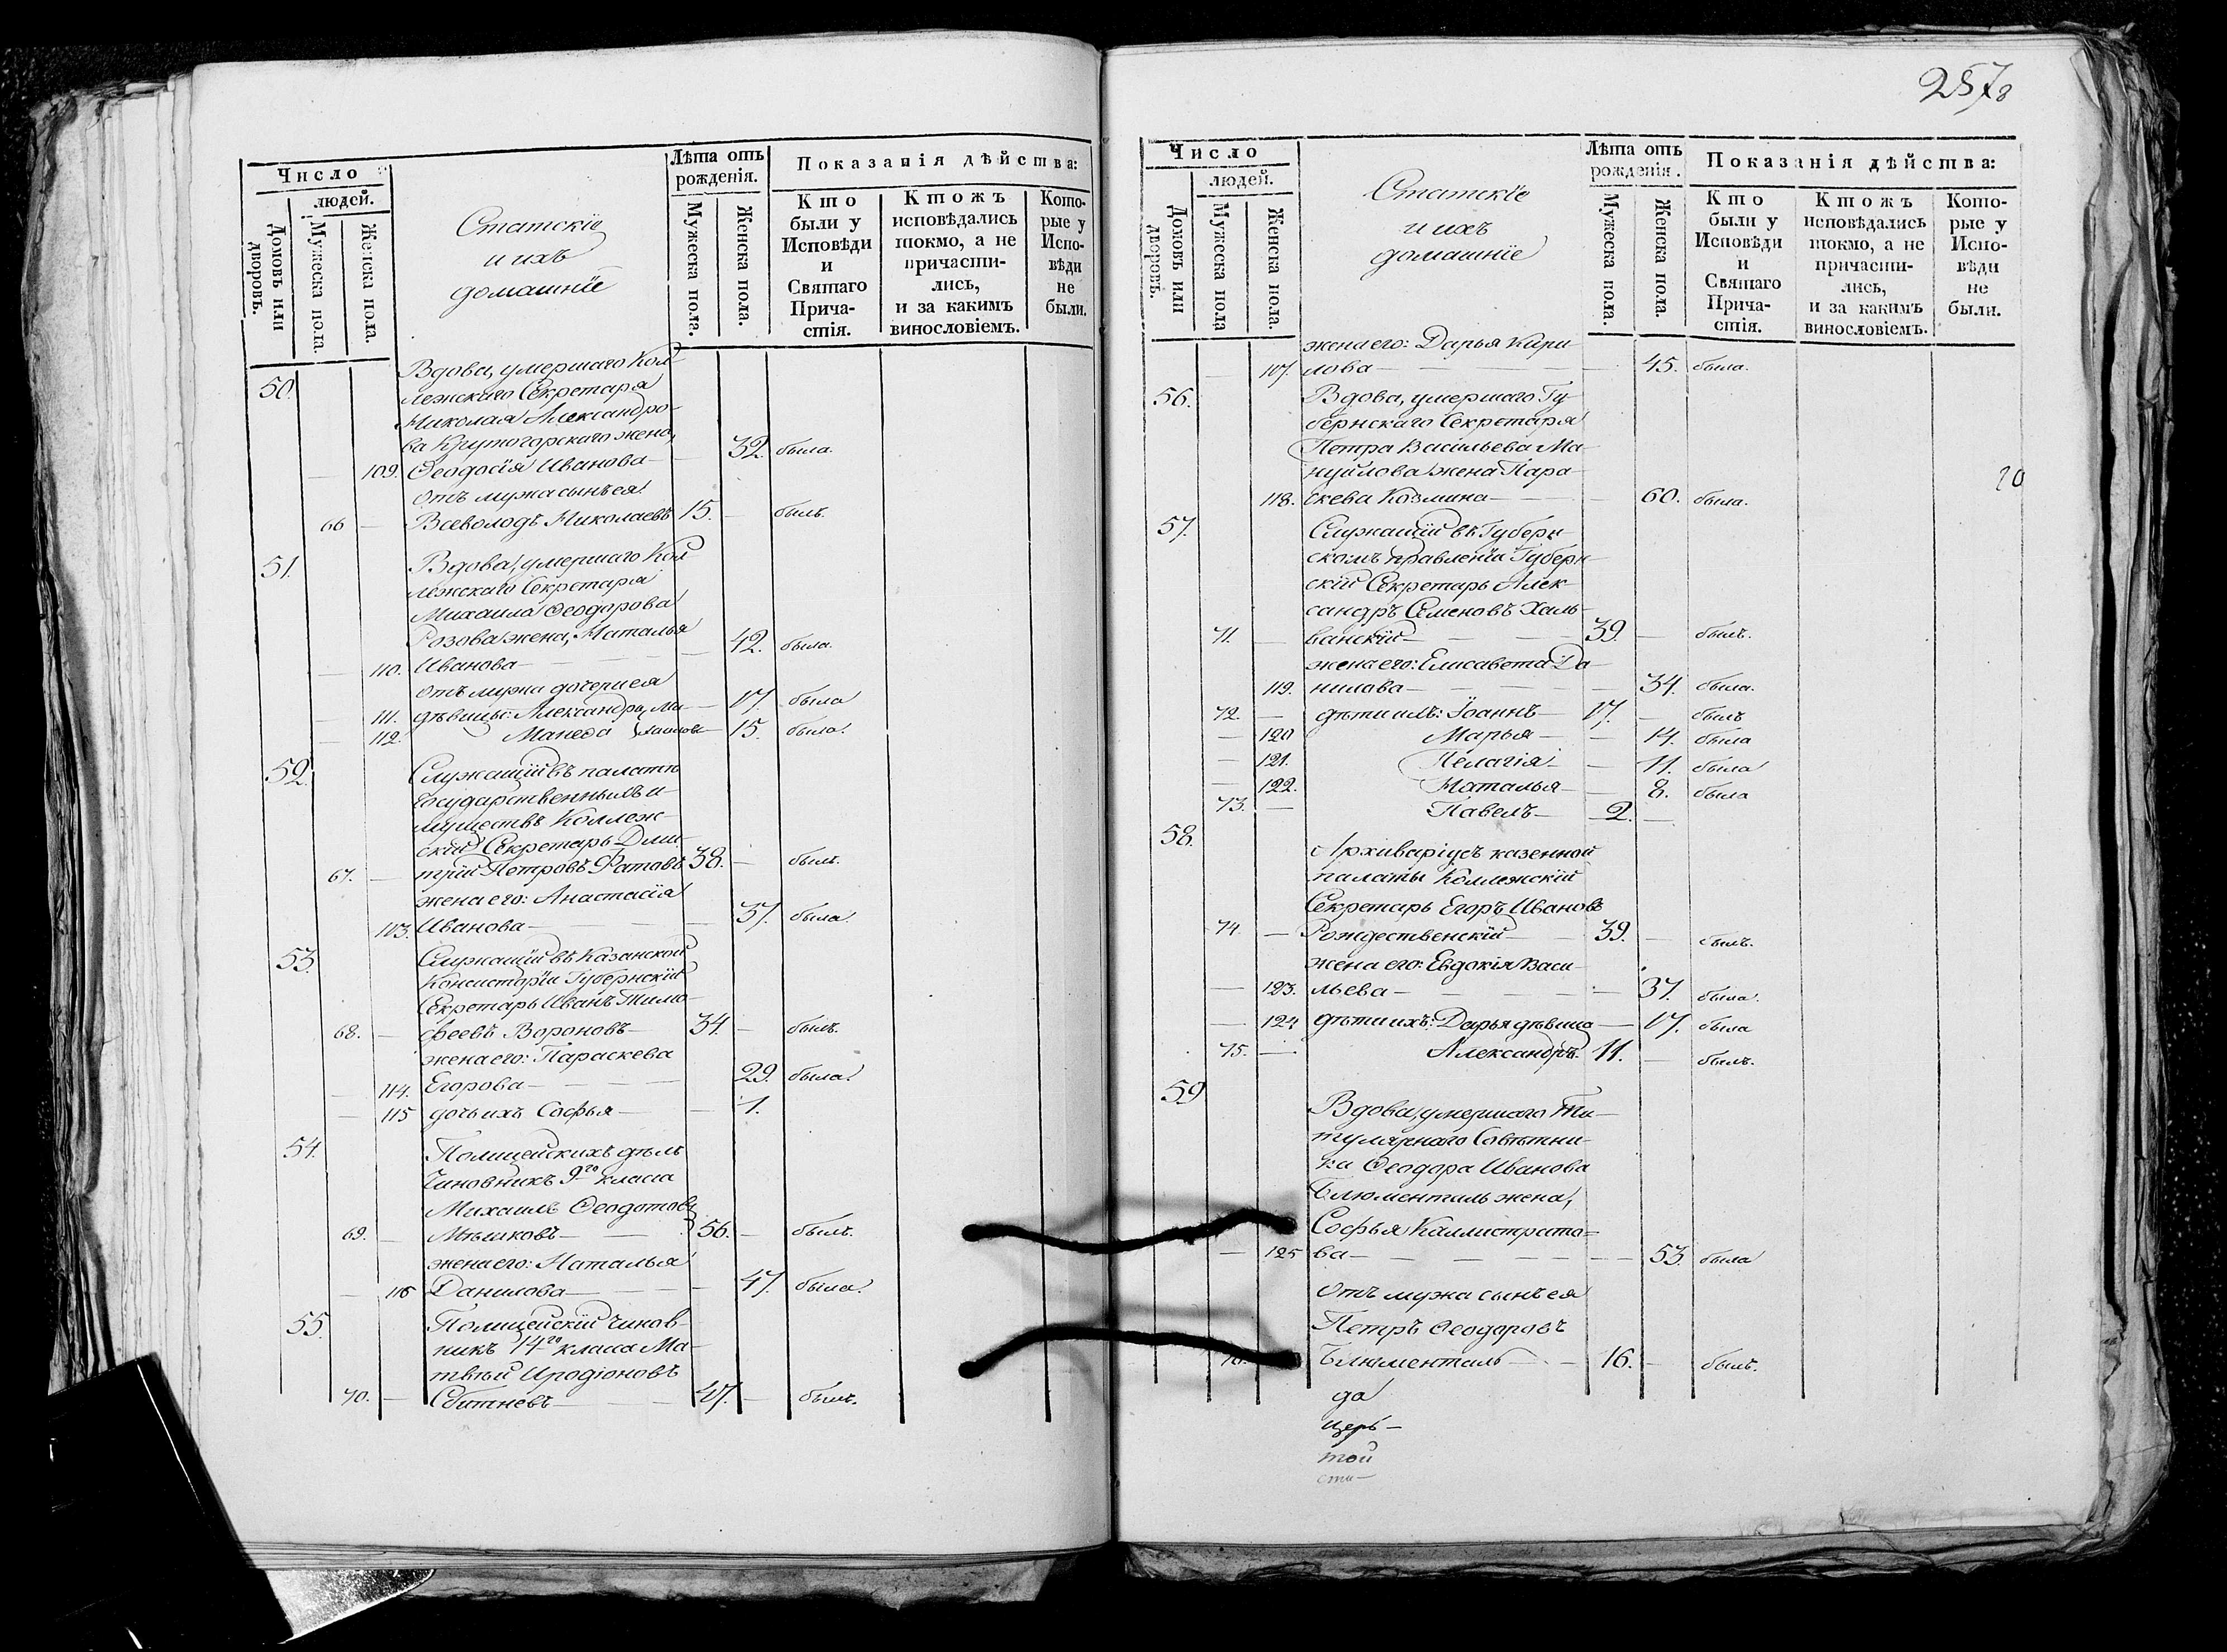 Число
людей.
Домовъ или дворовъ.
Мужеска пола.
Женска пола.
Статскіе
и ихъ
домашніе
Лѣта отъ
рожденія.
Мужеска пола.
Женска пола.
Показанія дѣйства:
Кто
были у
Исповѣди
и
Святаго
Прича-
стія.
Ктожъ
исповѣдались
токмо, а не
причасти-
лись,
и за какимъ
винословіемъ.
Кото-
рые у
Испо-
вѣди
не
были.
50. Вдова, умершаго Кол-
лежскаго Секретаря
Николая Александро-
ва Крутогорскаго жена,
109. Ѳеодосія Иванова 32. была.
отъ мужа сынъ ея
66 Всеволодъ Николаевъ 15. былъ.
51. Вдова, умершаго Кол
лежскаго Секретаря
Михаила Ѳеодорова
Розова жена, Наталья
110. Иванова 42. была.
отъ мужа дочери ея
111. дѣвицы: Александра Ми- 17. была
112. Манефа хаиловы 15. была.
52. Служащій въ палатѣ
государственныхъ и-
муществъ Коллеж-
скій Секретарь Дми-
67. трій Петровъ Фатовъ 38. былъ.
жена его: Анастасія
113. Иванова 37. была.
53. Служащій въ Казанской
Консисторіи Губернскій
Секретарь Иванъ Тимо-
68. феевъ Вороновъ 34. былъ.
жена его: Параскева
114. Егорова 29. была.
115 дочь ихъ Софья 1.
54. Полицейскихъ дѣлъ
Чиновникъ 9го класа
Михаилъ Ѳеодотовъ
69. Мѣшковъ 56. былъ.
жена его: Наталья
116 Данилова 47. была.
55. Полицейскій Чинов-
никъ 14го класа Ма-
твѣй Иродіоновъ
70. Сбитневъ 47. былъ.
257
8
Число
людей.
Домовъ или дворовъ.
Мужеска пола
Женска пола.
Статскіе
и ихъ
домашніе
Лѣта отъ
рожденія.
Мужеска пола.
Женска пола.
Показанія дѣйства:
Кто
были у
Исповѣди
и
Святаго
Прича-
стія.
Ктожъ
исповѣдались
токмо, а не
причасти-
лись,
и за какимъ
винословіемъ.
Кото-
рые у
Испо-
вѣди
не
были.
жена его: Дарья Кири
107. лова 45. была.
56. Вдова, умершаго Гу-
бернскаго Секретаря
Петра Васильева Ма-
нуйлова жена Пара-
118. скева Козмина 60. была.
57. Служащій въ Губерн
скомъ правленіи Губерн-
скій Секретарь Алек-
сандръ Семеновъ Халь-
71. ванскій 39. былъ.
жена его: Елисавета Да-
119. нилова 34. была.
72. дѣти ихъ: Іоаннъ 17. былъ
120 Марья 14. была
121. Пелагія 11. была
122. Наталья 8. была
73. Павелъ 2.
58. Архиваріусъ казенной
палаты Коллежскій
Секретарь Егоръ Ивановъ
74 Рождественскій 39. былъ.
жена его: Евдокія Васи-
123. льева 37. была.
124 дѣти ихъ: Дарья дѣвица 17. была
75. Александръ. 11. былъ.
59 Вдова, умершаго Ти-
тулярнаго Совѣтни-
ка Ѳеодора Иванова
Блюменталь жена,
Софья Каллистрато-
125 ва 53. была
отъ мужа сынъ ея
Петръ Ѳеодоровъ
Блюменталь 16. былъ.
да
церь-
той
сти-